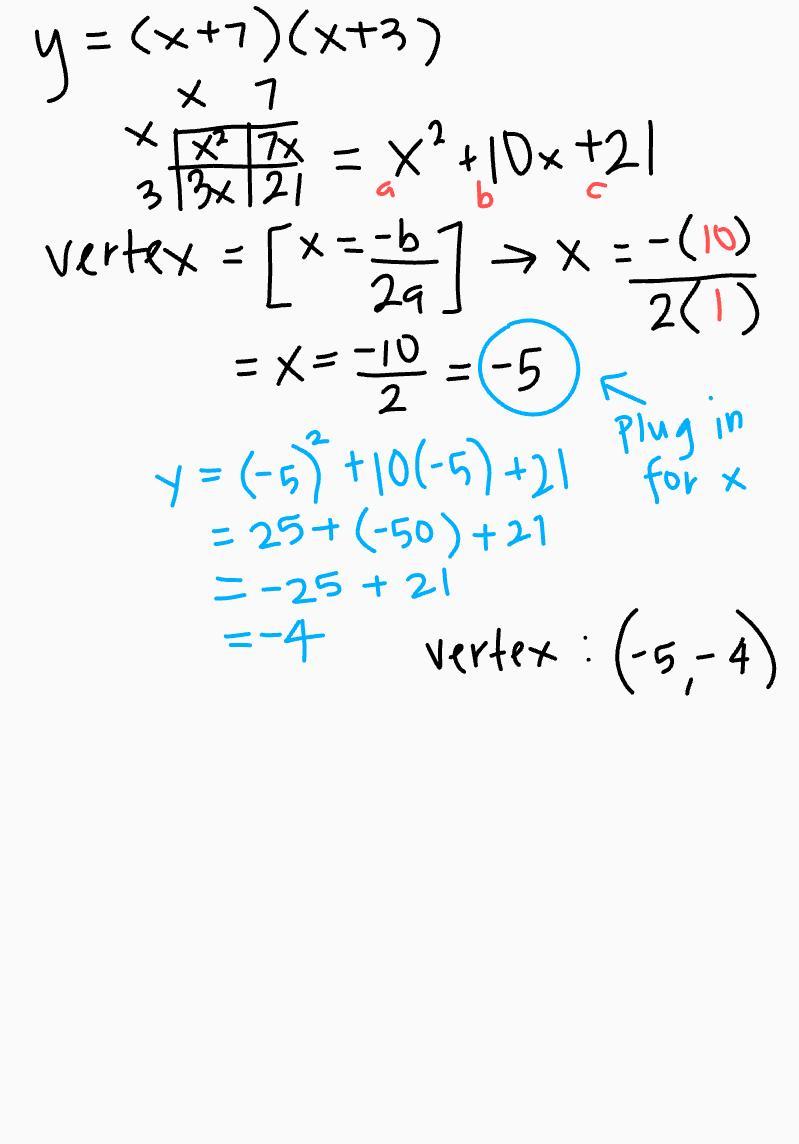 y = (x+7)(x+3)
x 7
x x² 7x = x² + 10x + 21
3 3x 21 a b c
vertex = [x = -b/2a] → x = -(10)/2(1)
= x = -10/2 = -5
plug in
for x
y = (-5)² + 10(-5) + 21
= 25 + (-50) + 21
= -25 + 21
= -4
vertex : (-5, -4)